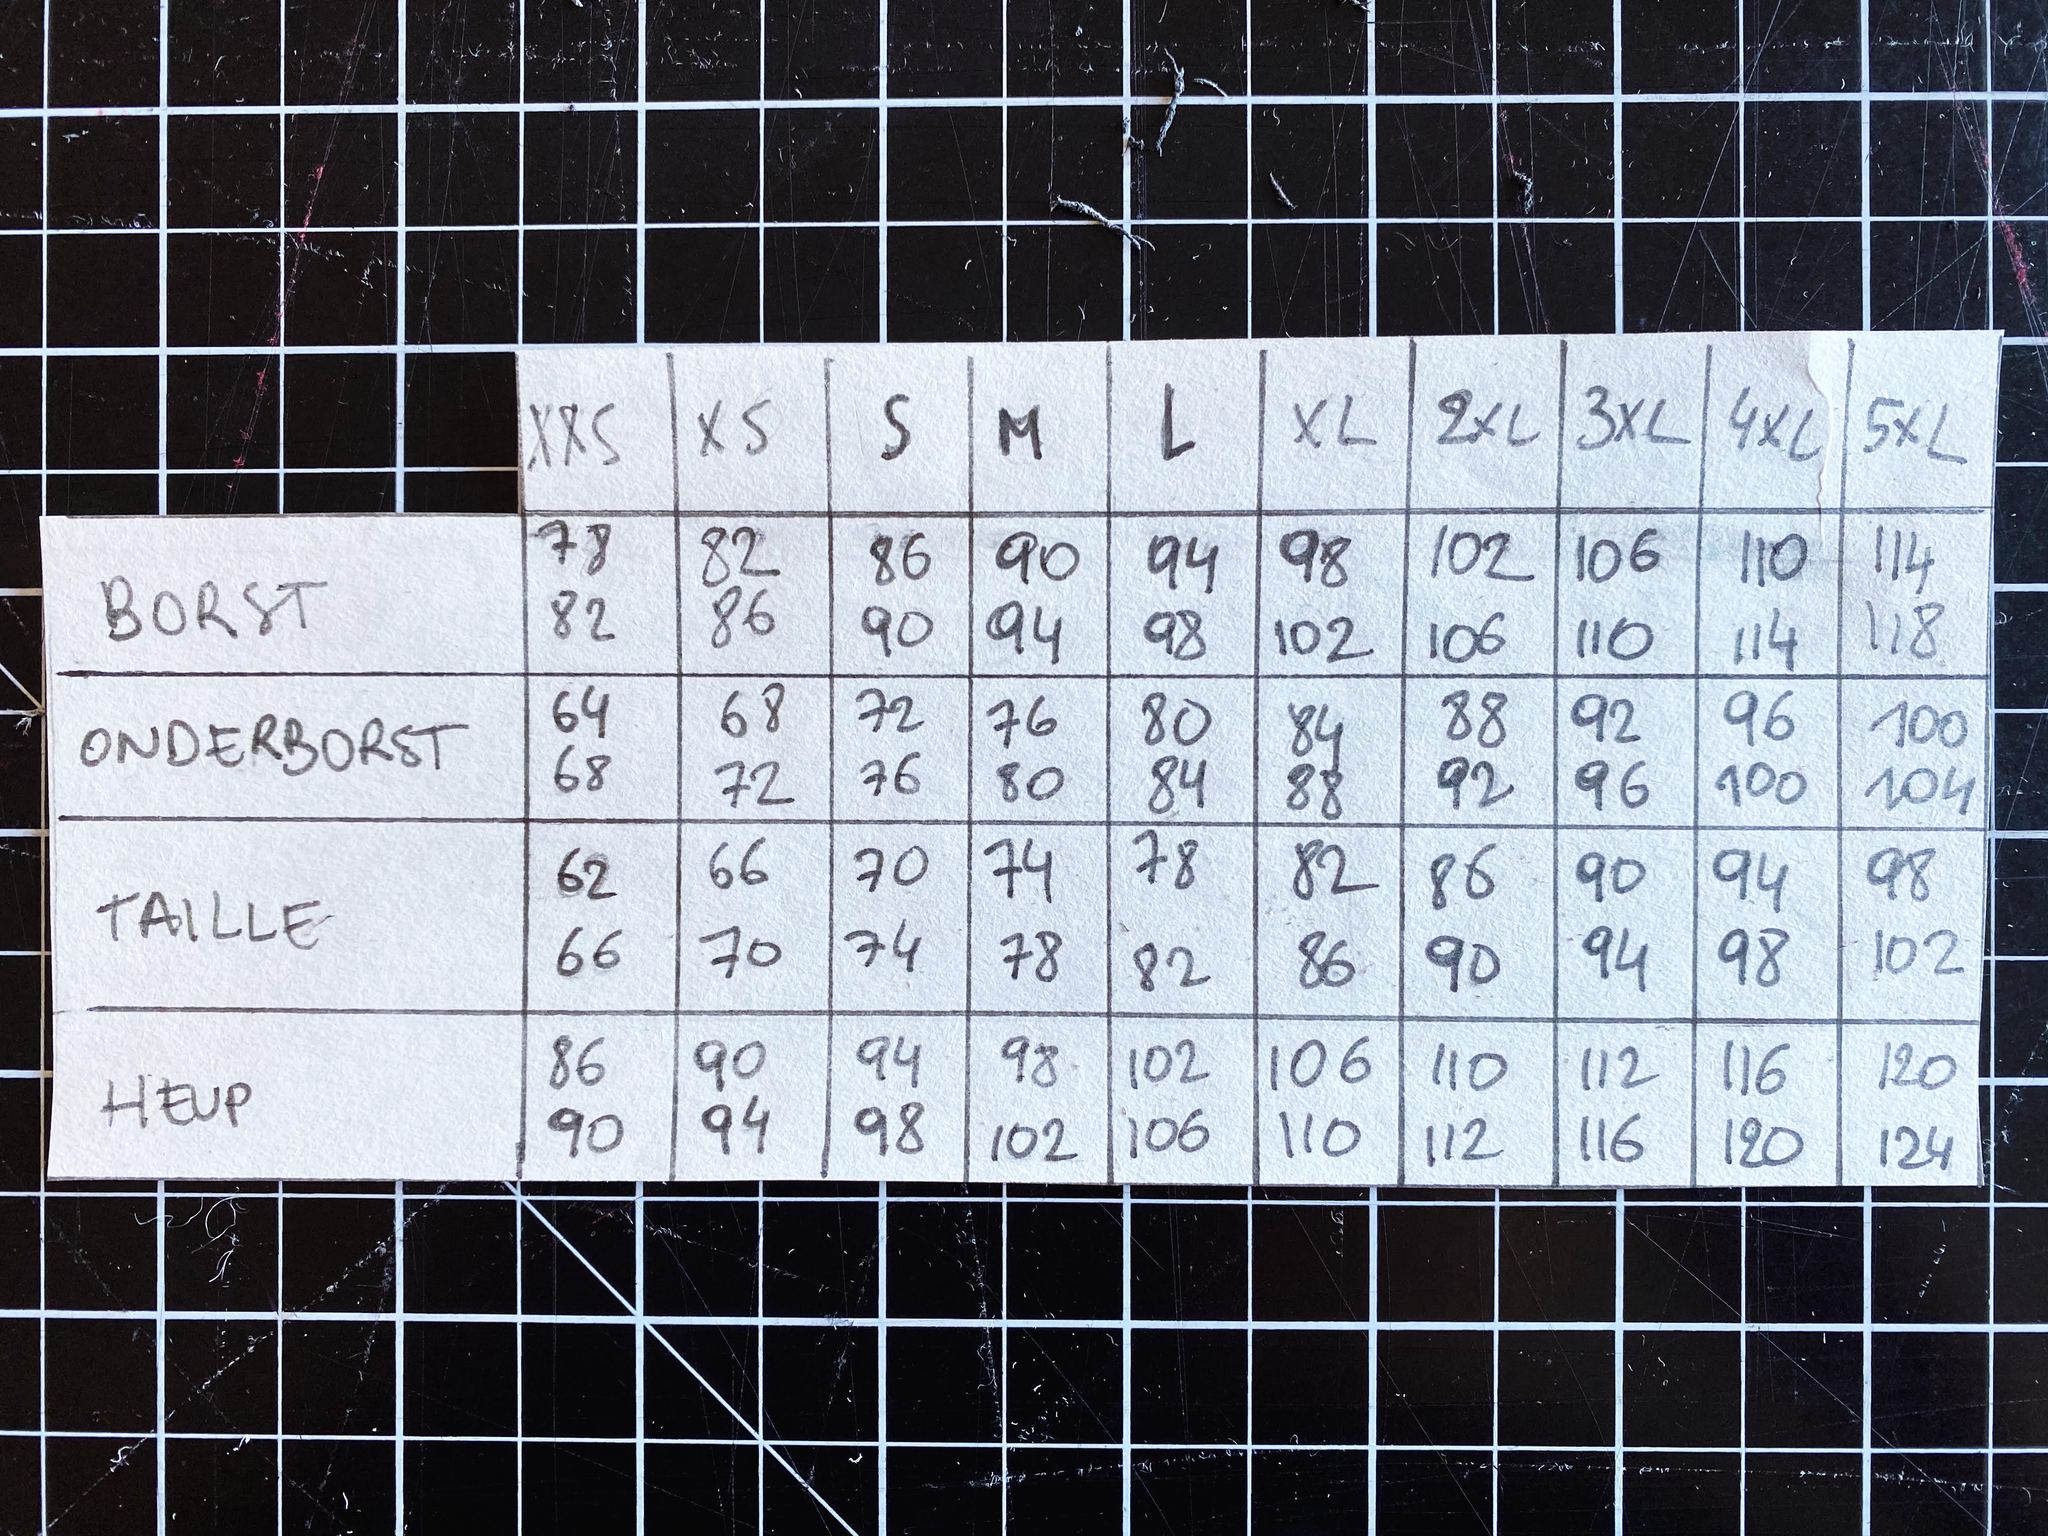 XXS XS S M L XL 2XL 3XL 4XL 5XL
78 82 86 90 94 98 102 106 110 114
BORST
82 86 90 94 98 102 106 110 114 118
64 68 72 76 80 84 88 92 96 100
ONDERBORST
68 72 76 80 84 88 92 96 100 104
62 66 70 74 78 82 86 90 94 98
TAILLE
66 70 74 78 82 86 90 94 98 102
86 90 94 98 102 106 110 112 116 120
HEUP
90 94 98 102 106 110 112 116 120 124